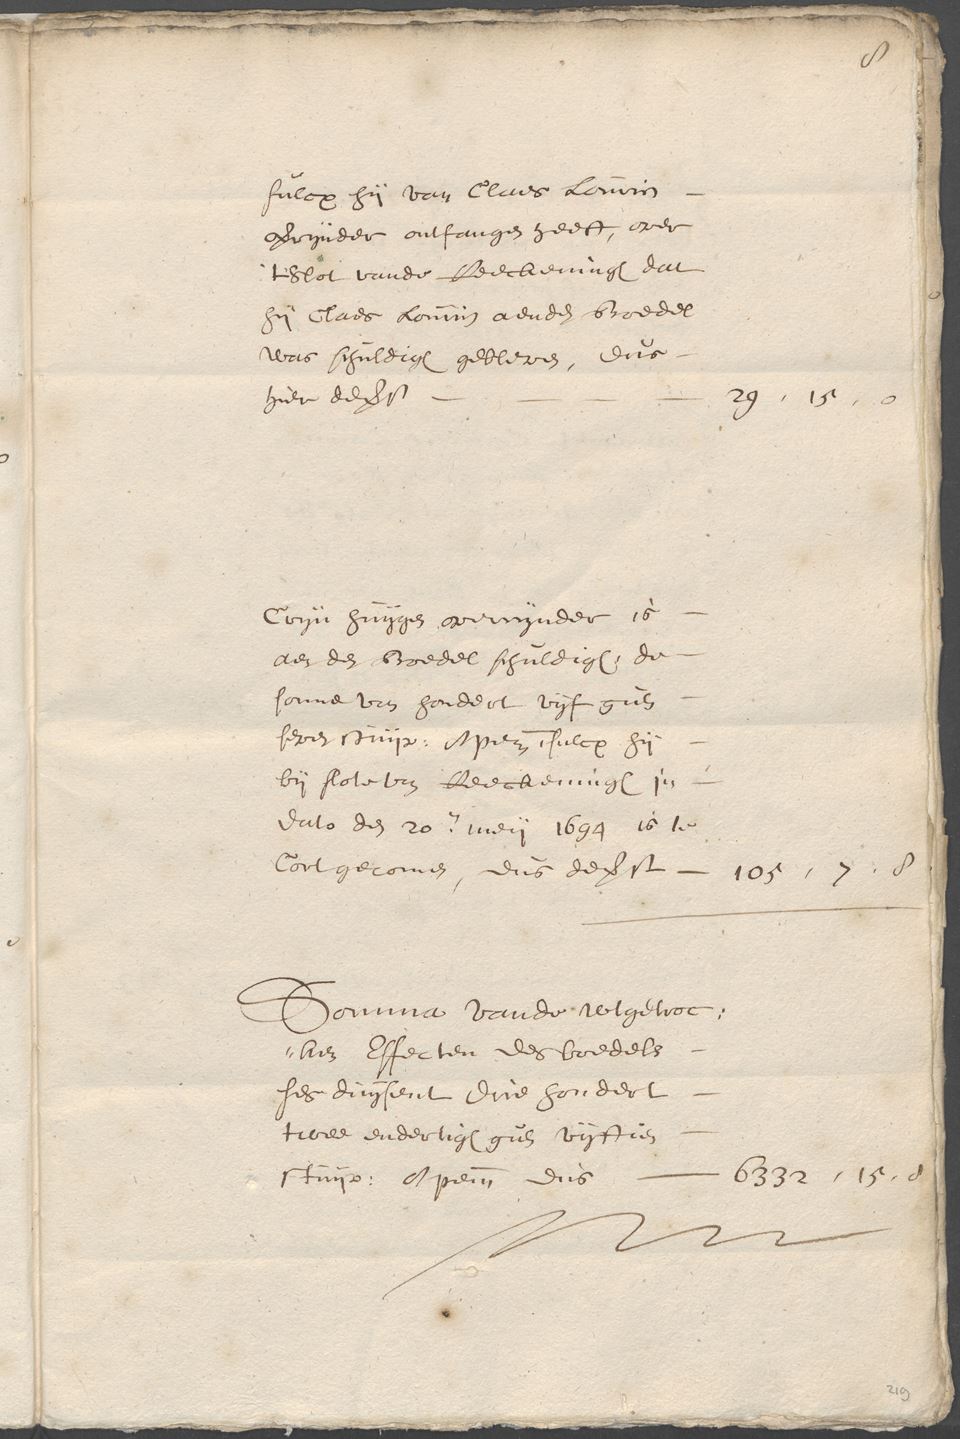 8
sulcx hij van Claes Louwis –
ontfangen heeft, over
't Slot vande Reeckeningh dat
hij Claes Louwis aenden Boedel
was schuldigh gebleven, dus –
hier – – – – 29 , 15 , 0
Crijn Huijgen is –
aen den Boedel schuldigh, de –
somme van hondert vijf guln –
seven stuijv: 8 pen sulcx hij –
bij slote van Reeckeningh in –
dato den 20 meij 1694 is te
Cort gecomen, dus – 105 , 7 , 8
Somma vande wtgetroc:
„ken Effecten des boedels –
ses duijsent drie hondert –
twee endertigh guln vijftien –
stuijv: 8 pen dus — 6332 , 15 , 8
219